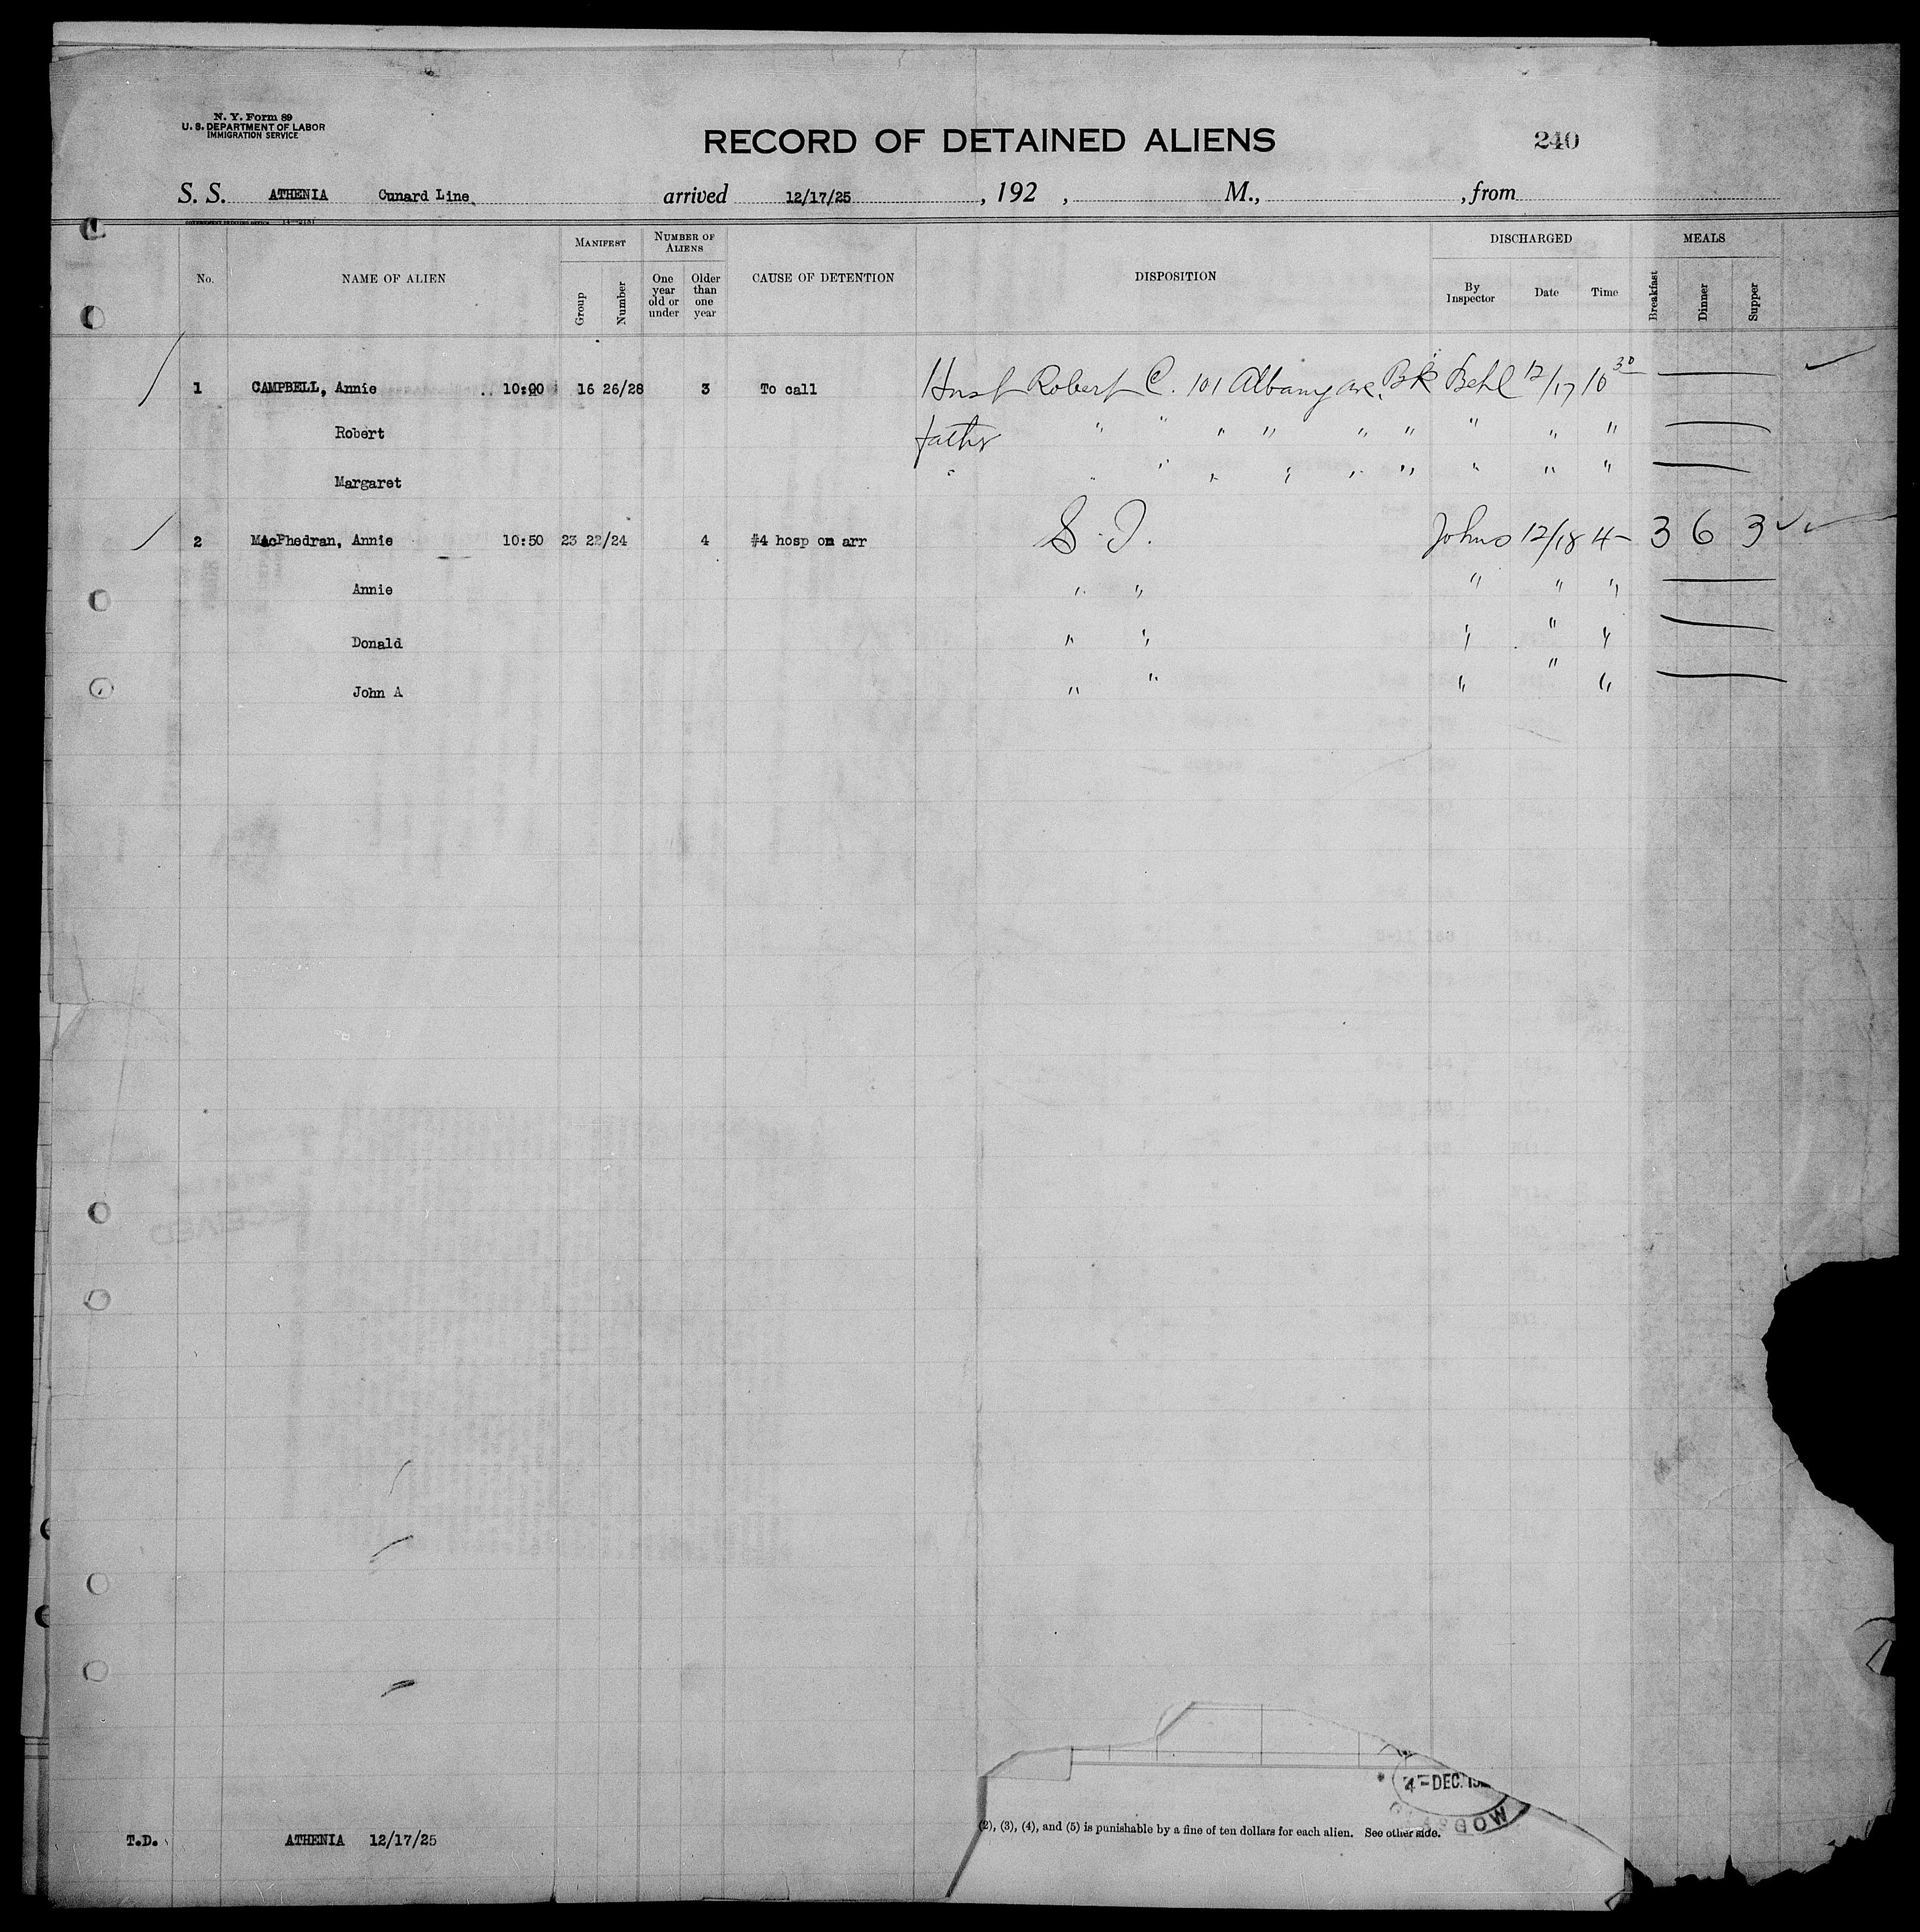 N. Y. Form 89
U. S. DEPARTMENT OF LABOR
IMMIGRATION SERVICE
RECORD OF DETAINED ALIENS
240
S. S. ATHENIA Cunard Line arrived 12/17/25, 192 , M., , from
GOVERNMENT PRINTING OFFICE
No. NAME OF ALIEN MANIFEST Group Number NUMBER OF ALIENS One year old or under Older than one year CAUSE OF DETENTION DISPOSITION DISCHARGED By Inspector Date Time MEALS Breakfast Dinner Supper
1 CAMPBELL, Annie 10:00 16 26/28 3 To call Husb Robert C. 101 Albany ave. Bk 12/17 10 30
Robert father " " " " " " " " "
Margaret " " " " " " " " " "
2 MacPhedran, Annie 10:50 23 22/24 4 #4 hosp on arr S. I. Johns 12/18 4- 3 6 3
Annie " " " " "
Donald " " " " "
John A " " " " "
4-DEC.
GLASGOW
(2), (3), (4), and (5) is punishable by a fine of ten dollars for each alien. See other side.
T.D. ATHENIA 12/17/25
RECEIVED